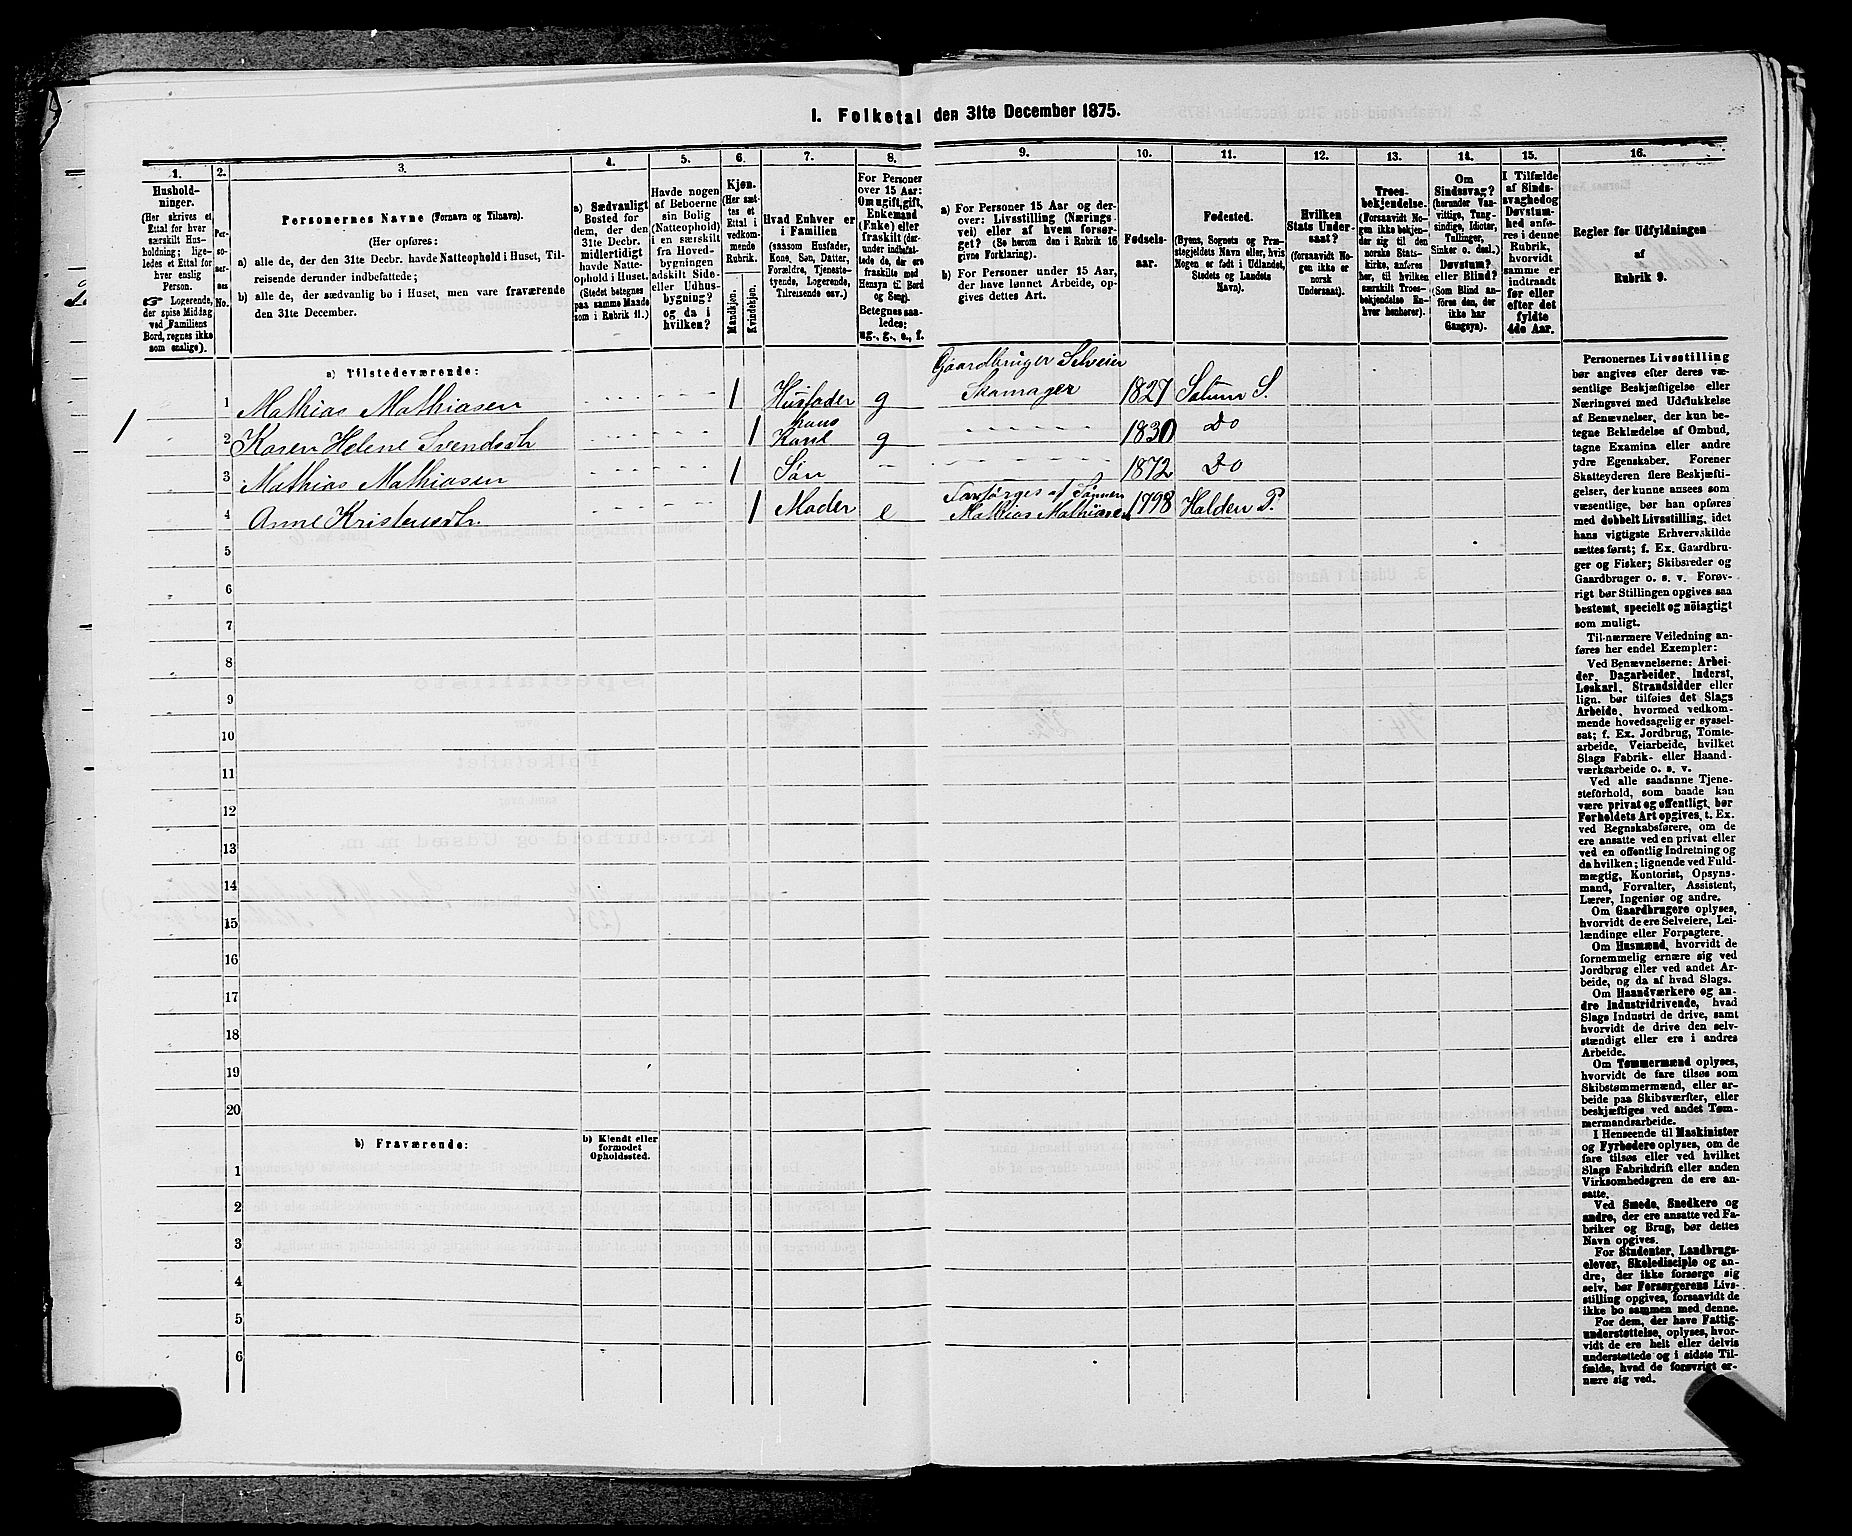 1. Folketal den 31te December 1875.
1. 2. 3. 4. 5. 6. 7. 8. 9. 10. 11. 12. 13. 14. 15. 16.
Hushold-
ninger.
(Her skrives et
Ettal for hver
særskilt Hus-
holdning; lige-
ledes et Ettal for
hver enslig
Person.
☞ Logerende,
der spise Middag
ved Familiens
Bord, regnes ikke
som enslige).
Per-
so-
ner-
nes
No.
Personernes Navne (Fornavn og Tilnavn).
(Her opføres:
a) alle de, der den 31te Decbr. havde Natteophold i Huset, Til-
reisende derunder indbefattede;
b) alle de, der sædvanlig bo i Huset, men vare fraværende
den 31te December.
a) Sædvanligt
Bosted for
dem, der den
31te Decbr.
midlertidigt
havde Natte-
ophold i Huset
(Stedet betegnes
paa samme Maade
som i Rubrik 11.)
Havde nogen
af Beboerne
sin Bolig
(Natteophold)
i en særskilt
fra Hoved-
bygningen
adskilt Side-
eller Udhus-
bygning?
og da i
hvilken?
Kjøn.
(Her sæt-
tes et
Ettal i
vedkom-
mende
Rubrik.
Mandkjøn.
Kvindekjøn.
Hvad Enhver er
i Familien
(saasom Husfader,
Kone, Søn, Datter,
Forældre, Tjeneste-
tyende, Logerende,
Tilreisende osv.)
For Personer
over 15 Aar:
Om ugift, gift,
Enkemand
(Enke) eller
fraskilt (der-
under indbefat-
tede de, der ere
fraskilte med
Hensyn til Bord
og Seng).
Betegnes saa-
ledes:
ug., g., e., f.
a) For Personer 15 Aar og der-
over: Livsstilling (Nærings-
vei) eller af hvem forsør-
get? (Se herom den i Rubrik 16
givne Forklaring).
b) For Personer under 15 Aar,
der have lønnet Arbeide, op-
gives dettes Art.
Fødsels-
aar.
Fødested.
(Byens, Sognets og Præ-
stegjeldets Navn eller, hvis
Nogen er født i Udlandet,
Stedets og Landets
Navn).
Hvilken
Stats Under-
saat?
(forsaavidt No-
gen ikke er
norsk
Undersaat).
Troes-
bekjendelse.
(Forsaavidt No-
gen ikke bekjen-
der sig til den
norske Stats-
kirke, anføres
her, til hvilken
særskilt Troes-
bekjendelse En-
hver henhører).
Om
Sindssvag?
(herunder Van-
vittige, Tung-
sindige, Idioter,
Tullinger,
Sinker o. desl.)
Døvstum?
eller Blind?
(Som Blind an-
føres den, der
ikke har
Gangsyn).
I Tilfælde
af Sinds-
svaghed og
Døvstum-
hed anfø-
res i denne
Rubrik,
hvorvidt
samme er
indtraadt
før eller
efter det
fyldte
4de Aar.
Regler for Udfyldningen
af
Rubrik 9.
a) Tilstedeværende:
1 Mathias Mathiasen 1 Husfader g Gaardbruger Selveier
Skomager 1827 Solum S.
1
2 Karen Helene Svendsdtr 1 hans
Kone g 1830 Do
3 Mathias Mathiasen 1 Søn 1872 Do
4 Anne Kristensdtr. 1 Moder e Forsørges af Sønnen
Mathias Mathiasen 1798 Holden P.
5
6
7
8
9
10
11
12
13
14
15
16
17
18
19
20
b) Fraværende:
b) Kjendt eller
formodet
Opholdssted.
1
2
3
4
5
6
Personernes Livsstilling
bør angives efter deres væ-
sentlige Beskjæftigelse eller
Næringsvei med Udelukkelse
af Benævnelser, der kun be-
tegne Beklædelse af Ombud,
tagne Examina eller andre
ydre Egenskaber. Forener
Skatteyderen flere Beskjæfti-
gelser, der kunne ansees som
væsentlige, bør han opføres
med dobbelt Livsstilling, idet
hans vigtigste Erhvervskilde
sættes først; f. Ex. Gaardbru-
ger og Fisker; Skibsreder og
Gaardbruger o. s. v. Forøv-
rigt bør Stillingen opgives saa
bestemt, specielt og nöiagtigt
som muligt.
Til nærmere Veiledning an-
føres her endel Exempler:
Ved Benævnelserne: Arbei-
der, Dagarbeider, Inderst,
Løskarl, Strandsidder eller
lign. bør tilføies det Slags
Arbeide, hvormed vedkom-
mende hovedsagelig er syssel-
sat; f. Ex. Jordbrug, Tomte-
arbeide, Veiarbeide, hvilket
Slags Fabrik- eller Haand-
værksarbeide o. s. v.
Ved alle saadanne Tjene-
steforhold, som baade kan
være privat og offentligt, bør
Forholdets Art opgives, t. Ex.
ved Regnskabsførere, om de
ere ansatte ved en privat eller
ved en offentlig Indretning og
da hvilken; lignende ved Fuld-
mægtig, Kontorist, Opsyns-
mand, Forvalter, Assistent,
Lærer, Ingeniør og andre.
Om Gaardbrugere oplyses,
hvorvidt de ere Selveiere, Lei-
lændinge eller Forpagtere.
Om Husmænd, hvorvidt de
fornemmelig ernære sig ved
Jordbrug eller ved andet Ar-
beide, og da af hvad Slags.
Om Haandværkere og an-
dre Industridrivende, hvad
Slags Industri de drive, samt
hvorvidt de drive den selv-
stændigt eller ere i andres
Arbeide.
Om Tømmermænd oplyses,
hvorvidt de fare tilsøs som
Skibstømmermænd, eller ar-
beide paa Skibsværfter, eller
beskjæftiges ved andet Tøm-
mermandsarbeide.
I Henseende til Maskinister
og Fyrbødere oplyses, om de
fare tilsøs eller ved hvilket
Slags Fabrikdrift eller anden
Virksomhedsgren de ere an-
satte.
Ved Smede, Snedkere og
andre, der ere ansatte ved Fa-
briker og Brug, bør dettes
Navn opgives.
For Studenter, Landbrugs-
elever, Skoledisciple og an-
dre, der ikke forsørge sig
selv, bør Forsørgerens Livs-
stilling opgives, forsaavidt de
ikke bo sammen med denne.
For dem, der have Fattig-
understøttelse, oplyses, hvor-
vidt de ere helt eller delvis
understøttede og i sidste Til-
fælde, hvad de forøvrigt er-
nære sig ved.